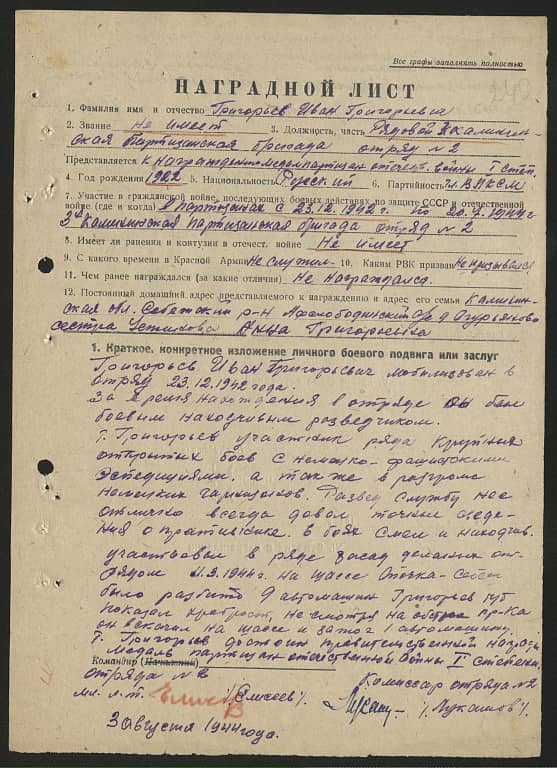 Все графы заполнять полностью
НАГРАДНОЙ ЛИСТ
1. Фамилия имя и отчество Григорьев Иван Григорьевич
2. Звание Не имеет 3. Должность, часть Рядовой 3 Калинин-
ская Партизанская бригада отряд №2
Представляется к награждению медал партизан отечеств. войны I степ.
4. Год рождения 1922 5. Национальность Русский 6. Партийность чл. ВЛКСМ
7. Участие в гражданской войне, последующих боевых действиях по защите СССР и отечественной
войне (где и когда) В партизанах с 23.12.1942г по 20.7.1944г
3я Калининская партизанская бригада отряд №2
8. Имеет ли ранения и контузии в отечест. войне Не имеет
9. С какого времени в Красной Армии Не служил 10. Каким РВК призван Не призывался
11. Чем ранее награждался (за какие отличия) Не награждался.
12. Постоянный домашний адрес представляемого к награждению и адрес его семьи Калинин-
ская обл. р-н д. Огурьяково
сестра Анна Григорьевна
1. Краткое, конкретное изложение личного боевого подвига или заслуг
Григорьев Иван Григорьевич мобилизован в
отряд 23.12.1942 года.
За время нахождения в отряде он был
боевым находчивым разведчиком.
Т. Григорьев участник ряда крупных
открытых боев с немецко-фашистскими
эспедициями, а так же в разгроме
немецких гарнизонов. Развед службу нес
отлично всегда давал точные сведе-
ния о противнике. В боях смел и находчив.
участвовал в ряде засад деланых от-
рядом 11.3.1944г. на шоссе Опочка-
было разбито 9 автомашин Григорьев тут
показал храбрость, не смотря на обстрел пр-ка
он вскочил на шоссе и зажог 1 автомашину.
Т. Григорьев достоин правительственной награды
медаль партизан отечественной войны I степени.
Командир (Начальник)
отряда №2 Комиссар отряда №2
мл. л-т. /Елисеев/. /Лукашов/.
3 августа 1944 года.